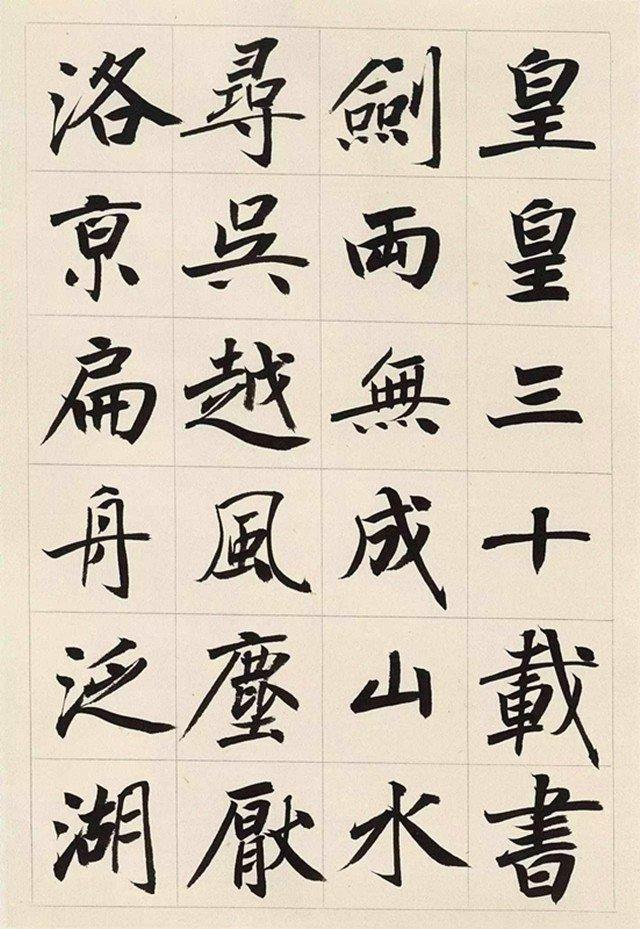 皇皇三十載書
劍兩無成山水
尋吳越風塵厭
洛京扁舟泛湖